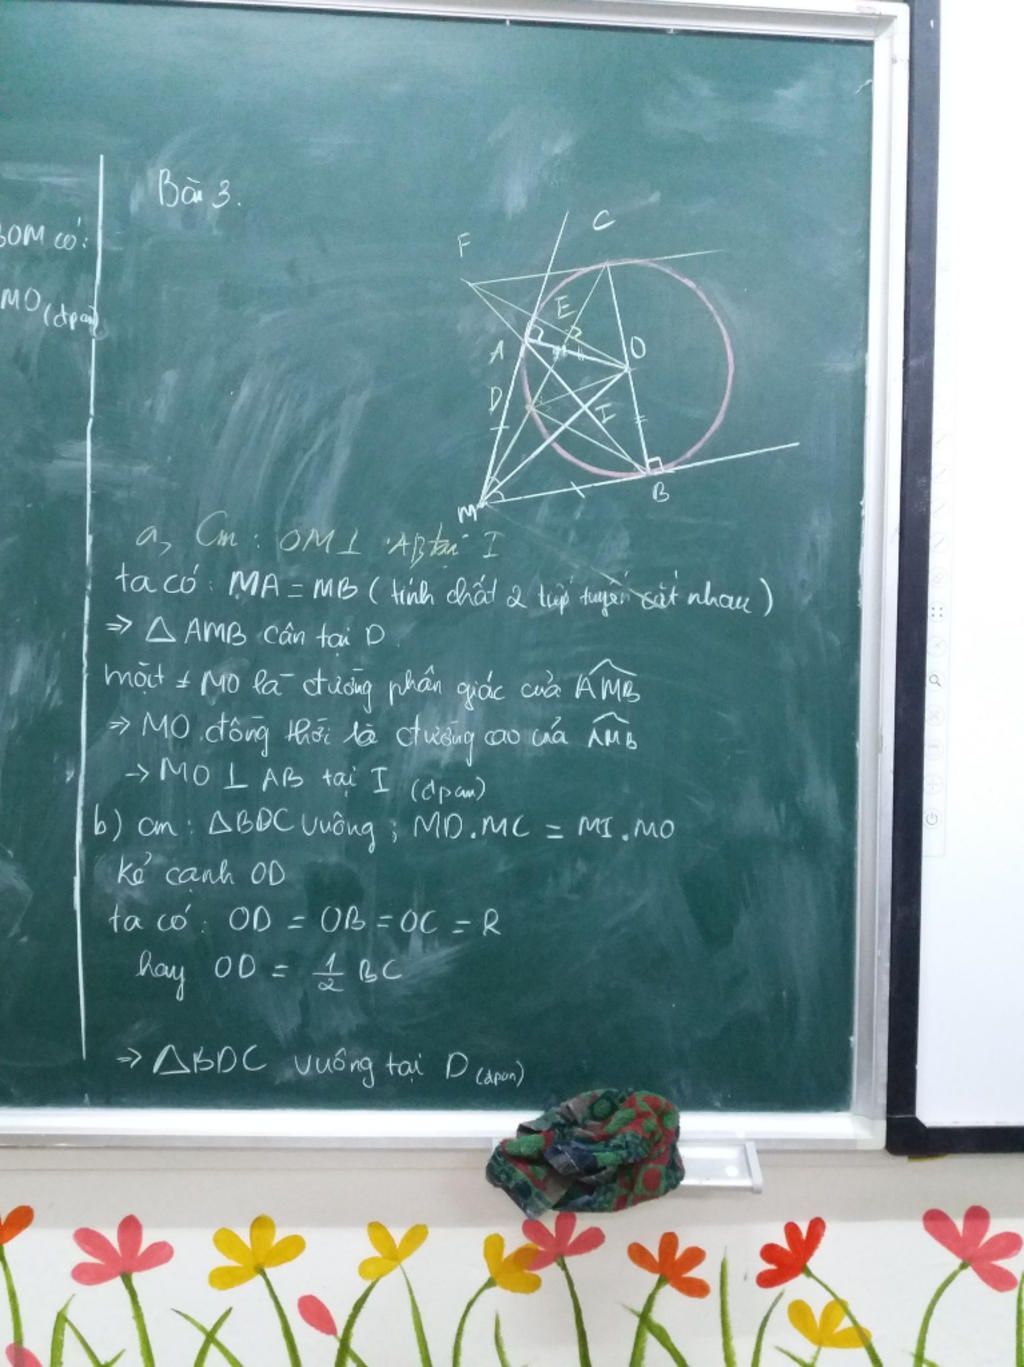 BOM có:
MO (đpcm)
Bài 3.
C
F
E
A
O
D
I
M
B
a, Cm: OM⊥ AB tại I
ta có: MA = MB ( tính chất 2 tiếp tuyến cắt nhau )
=> △ AMB cân tại D
mặt ≠ MO là đường phân giác của AMB
=> MO đồng thời là đường cao của AMB
-> MO ⊥ AB tại I (đpcm)
b) cm: △BDC vuông; MD.MC = MI.MO
kẻ cạnh OD
ta có: OD = OB = OC = R
hay OD = 1/2 BC
=> △BDC vuông tại D (đpcm)